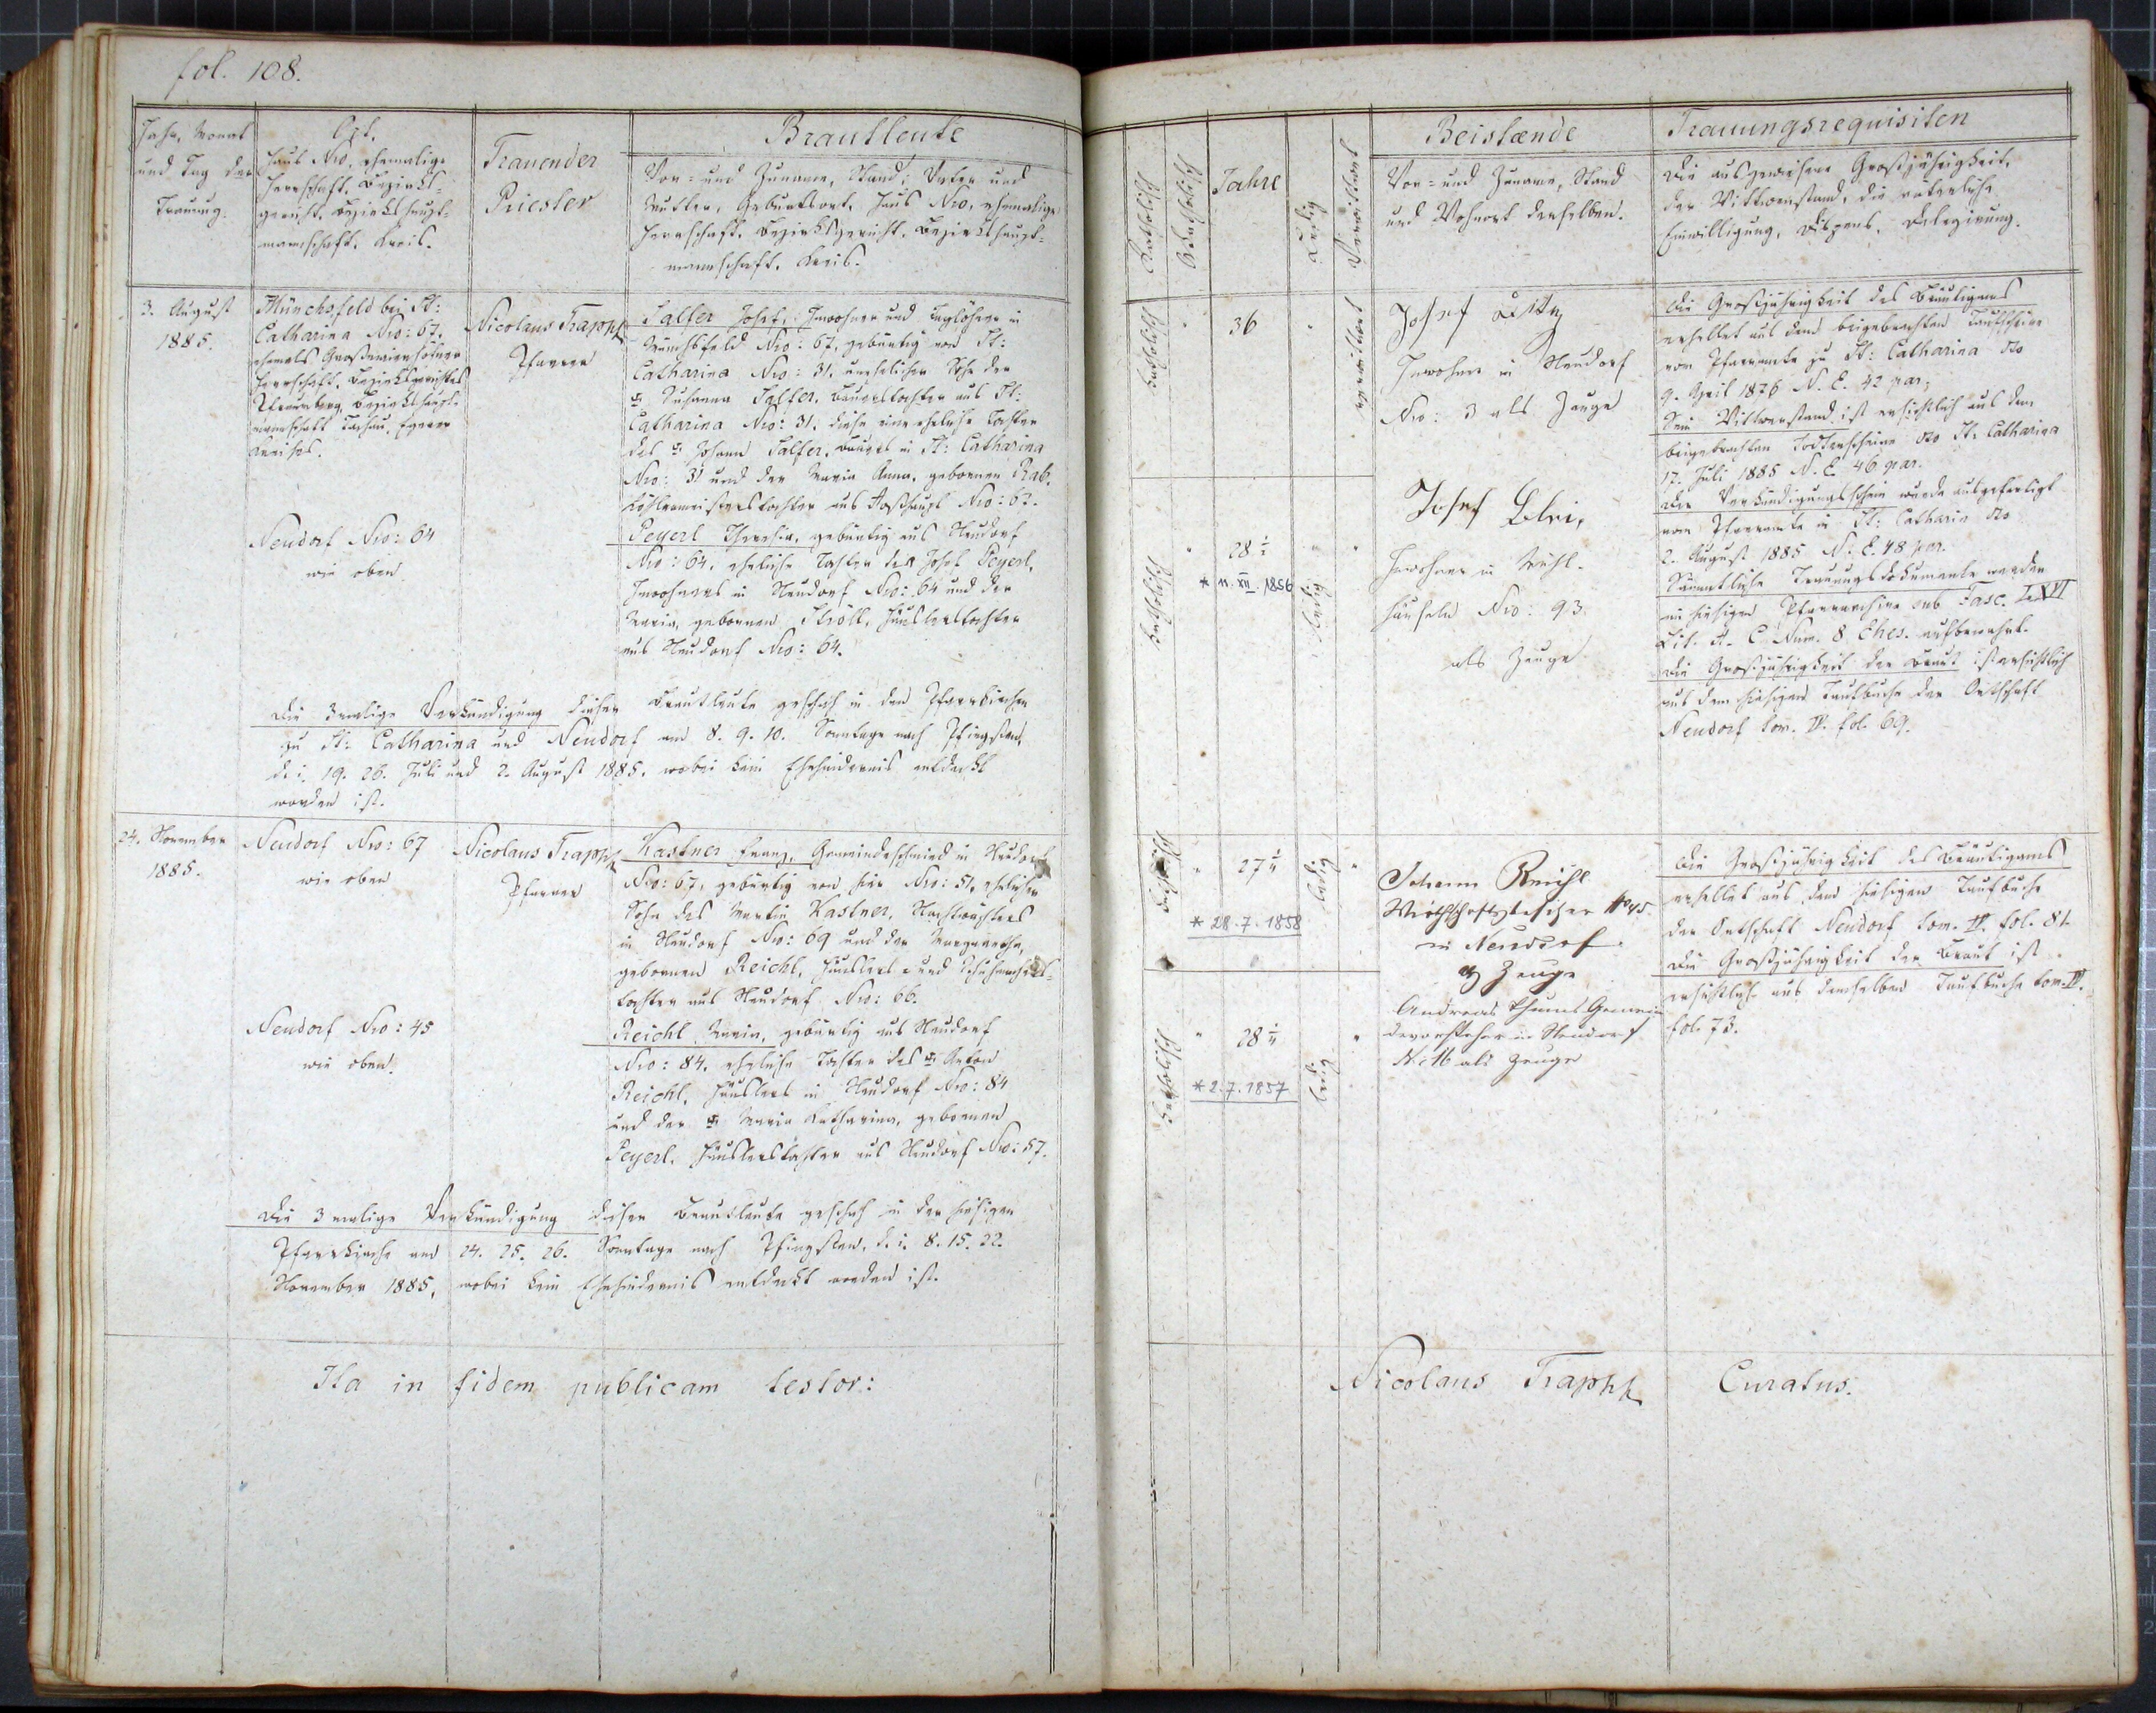 fol. 108.
Jahr, Monat
und Tag der
Trauung.
Ort,
Haus Nro, ehemalige
Herrschaft, Bezirks-
gericht, Bezirkshaupt-
mannschaft, Kreis.
Trauender
Priester
Brautleute
Vor- und Zuname, Stand; Vater und
Mutter, Geburtsort, Haus Nro, ehemalige
Herrschaft, Bezirksgericht, Bezirkshaupt-
mannschaft, Kreis.
3. August
1885.
Münchsfeld bei St:
Catharina Nro: 67,
ehemals
Herrschaft, Bezirksgerichtes
Pfraumberg, Bezirkshaupt-
mannschaft Tachau, Egerer
Kreises.
Nicolaus Trappl
Pfarrer
Salfer Josef, Inwohner und Taglöhner in
Münchsfeld Nro: 67, gebürtig von St:
Catharina Nro: 31, unehelicher Sohn der
Susanna Salfer, Bauerstochter aus St:
Catharina Nro: 31, diese eine eheliche Tochter
des Johann Salfer, Bauers in St: Catharina
Nro: 31 und der Maria Anna, gebornen Rab,
aus Nro: 63.
Neudorf Nro: 64
wie oben.
Peyerl Theresia, gebürtig aus Neudorf
Nro: 64, eheliche Tochter des Josef Peyerl,
Inwohners in Neudorf Nro: 64 und der
Maria, gebornen Ströll, Häuslerstochter
aus Neudorf Nro: 64.
Die 3malige Verkündigung dieser Brautleute geschah in den Pfarrkirchen
zu St: Catharina und Neudorf am 8. 9. 10. Sonntage nach Pfingsten,
d. i. 19. 26. Juli und 2. August 1885, wobei kein Ehehindernis entdeckt
worden ist.
24. November
1885.
Neudorf Nro: 67
wie oben
Nicolaus Trappl
Pfarrer
Kastner Franz, Gemeindeschmied in Neudorf
Nro: 67, gebürtig von hier Nro: 51, ehelicher
Sohn des Martin Kastner, Nachtwächters
in Neudorf Nro: 69 und der Margaretha,
gebornen Reichl, Häuslers- und Schuhmachers-
tochter aus Neudorf Nro: 66.
Neudorf Nro: 45
wie oben.
Reichl Maria, gebürtig aus Neudorf
Nro: 84, eheliche Tochter des Anton
Reichl, Häuslers in Neudorf Nro: 84
und der Maria Katharina, gebornen
Peyerl, Häuslerstochter aus Neudorf Nro: 57.
Die 3malige Verkündigung dieser Brautleute geschah in der hiesigen
Pfarrkirche am 24. 25. 26. Sonntage nach Pfingsten, d. i. 8. 15. 22.
November 1885, wobei kein Ehehindernis entdeckt worden ist.
Ita in fidem publicam testor:
Katholisch
Akatholisch
Jahre
Ledig
Verwittwet
Beistænde
Vor- und Zuname, Stand
und Wohnort derselben.
Trauungsrequisiten
Die ausgewiesene Großjährigkeit,
der Wittwenstand, die väterliche
Einwilligung, Dispens, Delegirung.
katholisch
36
verwittwet
Josef
Inwohner in Neudorf
Nro: 3 als Zeuge
Die Großjährigkeit des Bräutigams
erhellet aus dem beigebrachten Taufscheine
vom Pfarramte zu St: Catharina dto
9. April 1876 N. E. 42 par;
Sein Wittwerstand ist ersichtlich aus dem
beigebrachten Todtenscheine dto St: Catharina
17. Juli 1885 N. E. 46 par.
Der Verkündigungsschein wurde ausgefertigt
vom Pfarramte in St: Catharin dto
2. August 1885 N. E. 48 par.
Sämmtliche Trauungsdokumente werden
im hiesigen Pfarrarchive sub Fasc. XVI
Lit. A - C Num. 8 Ehes. aufbewahrt.
Die Großjährigkeit der Braut ist ersichtlich
aus dem hiesigen Taufbuche der Ortschaft
Neudorf tom. IV. fol. 69.
katholisch
28
* 11. XII. 1856
ledig
Josef
Inwohner in Mühl-
häuseln Nro: 93
als Zeuge
katholisch
27
* 28. 7. 1858
ledig
Johann Reichl
Wirthschaftsbesitzer No 45
in Neudorf
als Zeuge
Die Großjährigkeit des Bräutigams
erhellet aus dem hiesigen Taufbuche
der Ortschaft Neudorf tom. IV. fol. 81.
Die Großjährigkeit der Braut ist
ersichtlich aus demselben Taufbuche tom. IV.
fol. 73.
katholisch
28
* 2. 7. 1857
ledig
Andreas Gemein
devorsteher in Neudorf
N: 16 als Zeuge
Nicolaus Trappl Curatus.